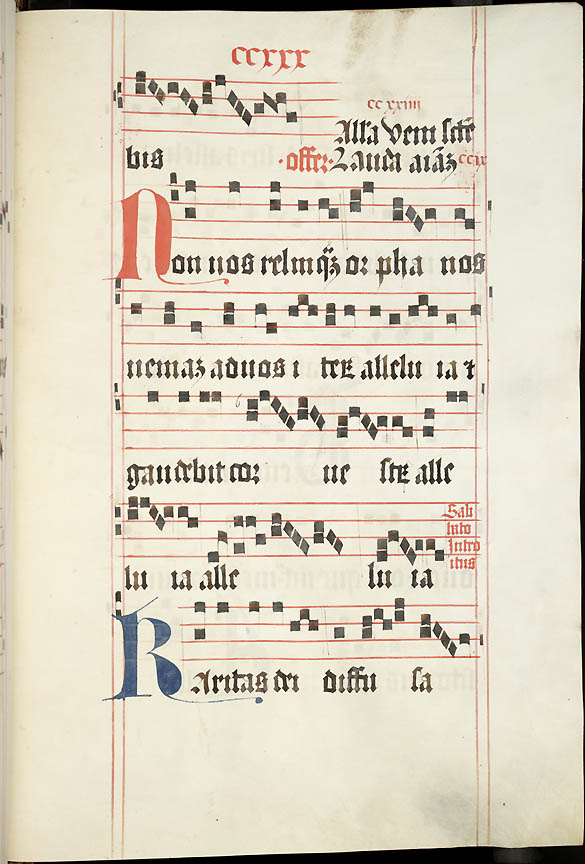 ccxxx
ccxxiiii
Alla Veni scte
bis .offer. Lauda aiaz ccix
Non vos relinqz or pha nos
veniaz ad vos i teR allelu ia z
gaudebit cor ve stR alle
lu ia alle lu ia
Sab
bato
Intro
itus
KAritas dei diffu sa